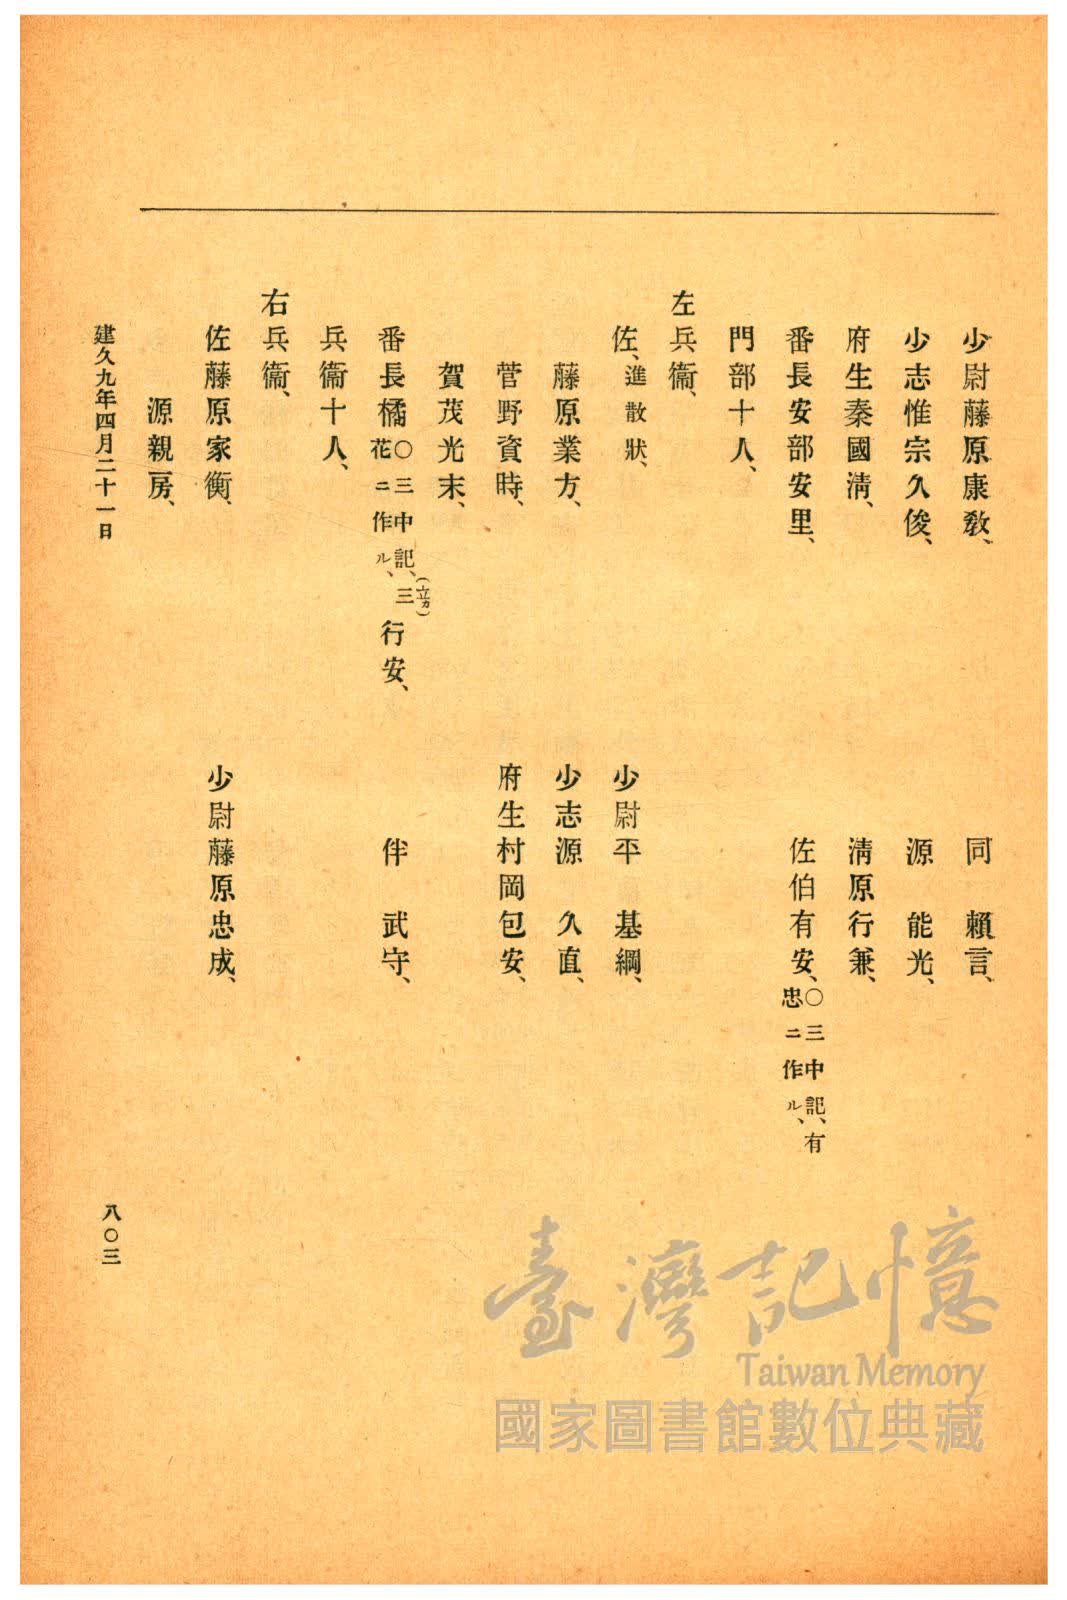 少尉藤原康敎、　同　賴言、
少志惟宗久俊、　源　能光、
府生秦國淸、　淸原行兼、
番長安部安里、　佐伯有安、〇三中記、有忠ニ作ル、
門部十人、
左兵衞、
佐、進散狀、　少尉平　基綱、
藤原業方、　少志源　久直、
菅野資時、　府生村岡包安、
賀茂光末、
番長橘〇三中記、三(立カ)花ニ作ル、行安、　伴　武守、
兵衞十人、
右兵衞、
佐藤原家衡、　少尉藤原忠成、
源親房、
建久九年四月二十一日
八〇三
臺灣記憶
Taiwan Memory
國家圖書館數位典藏